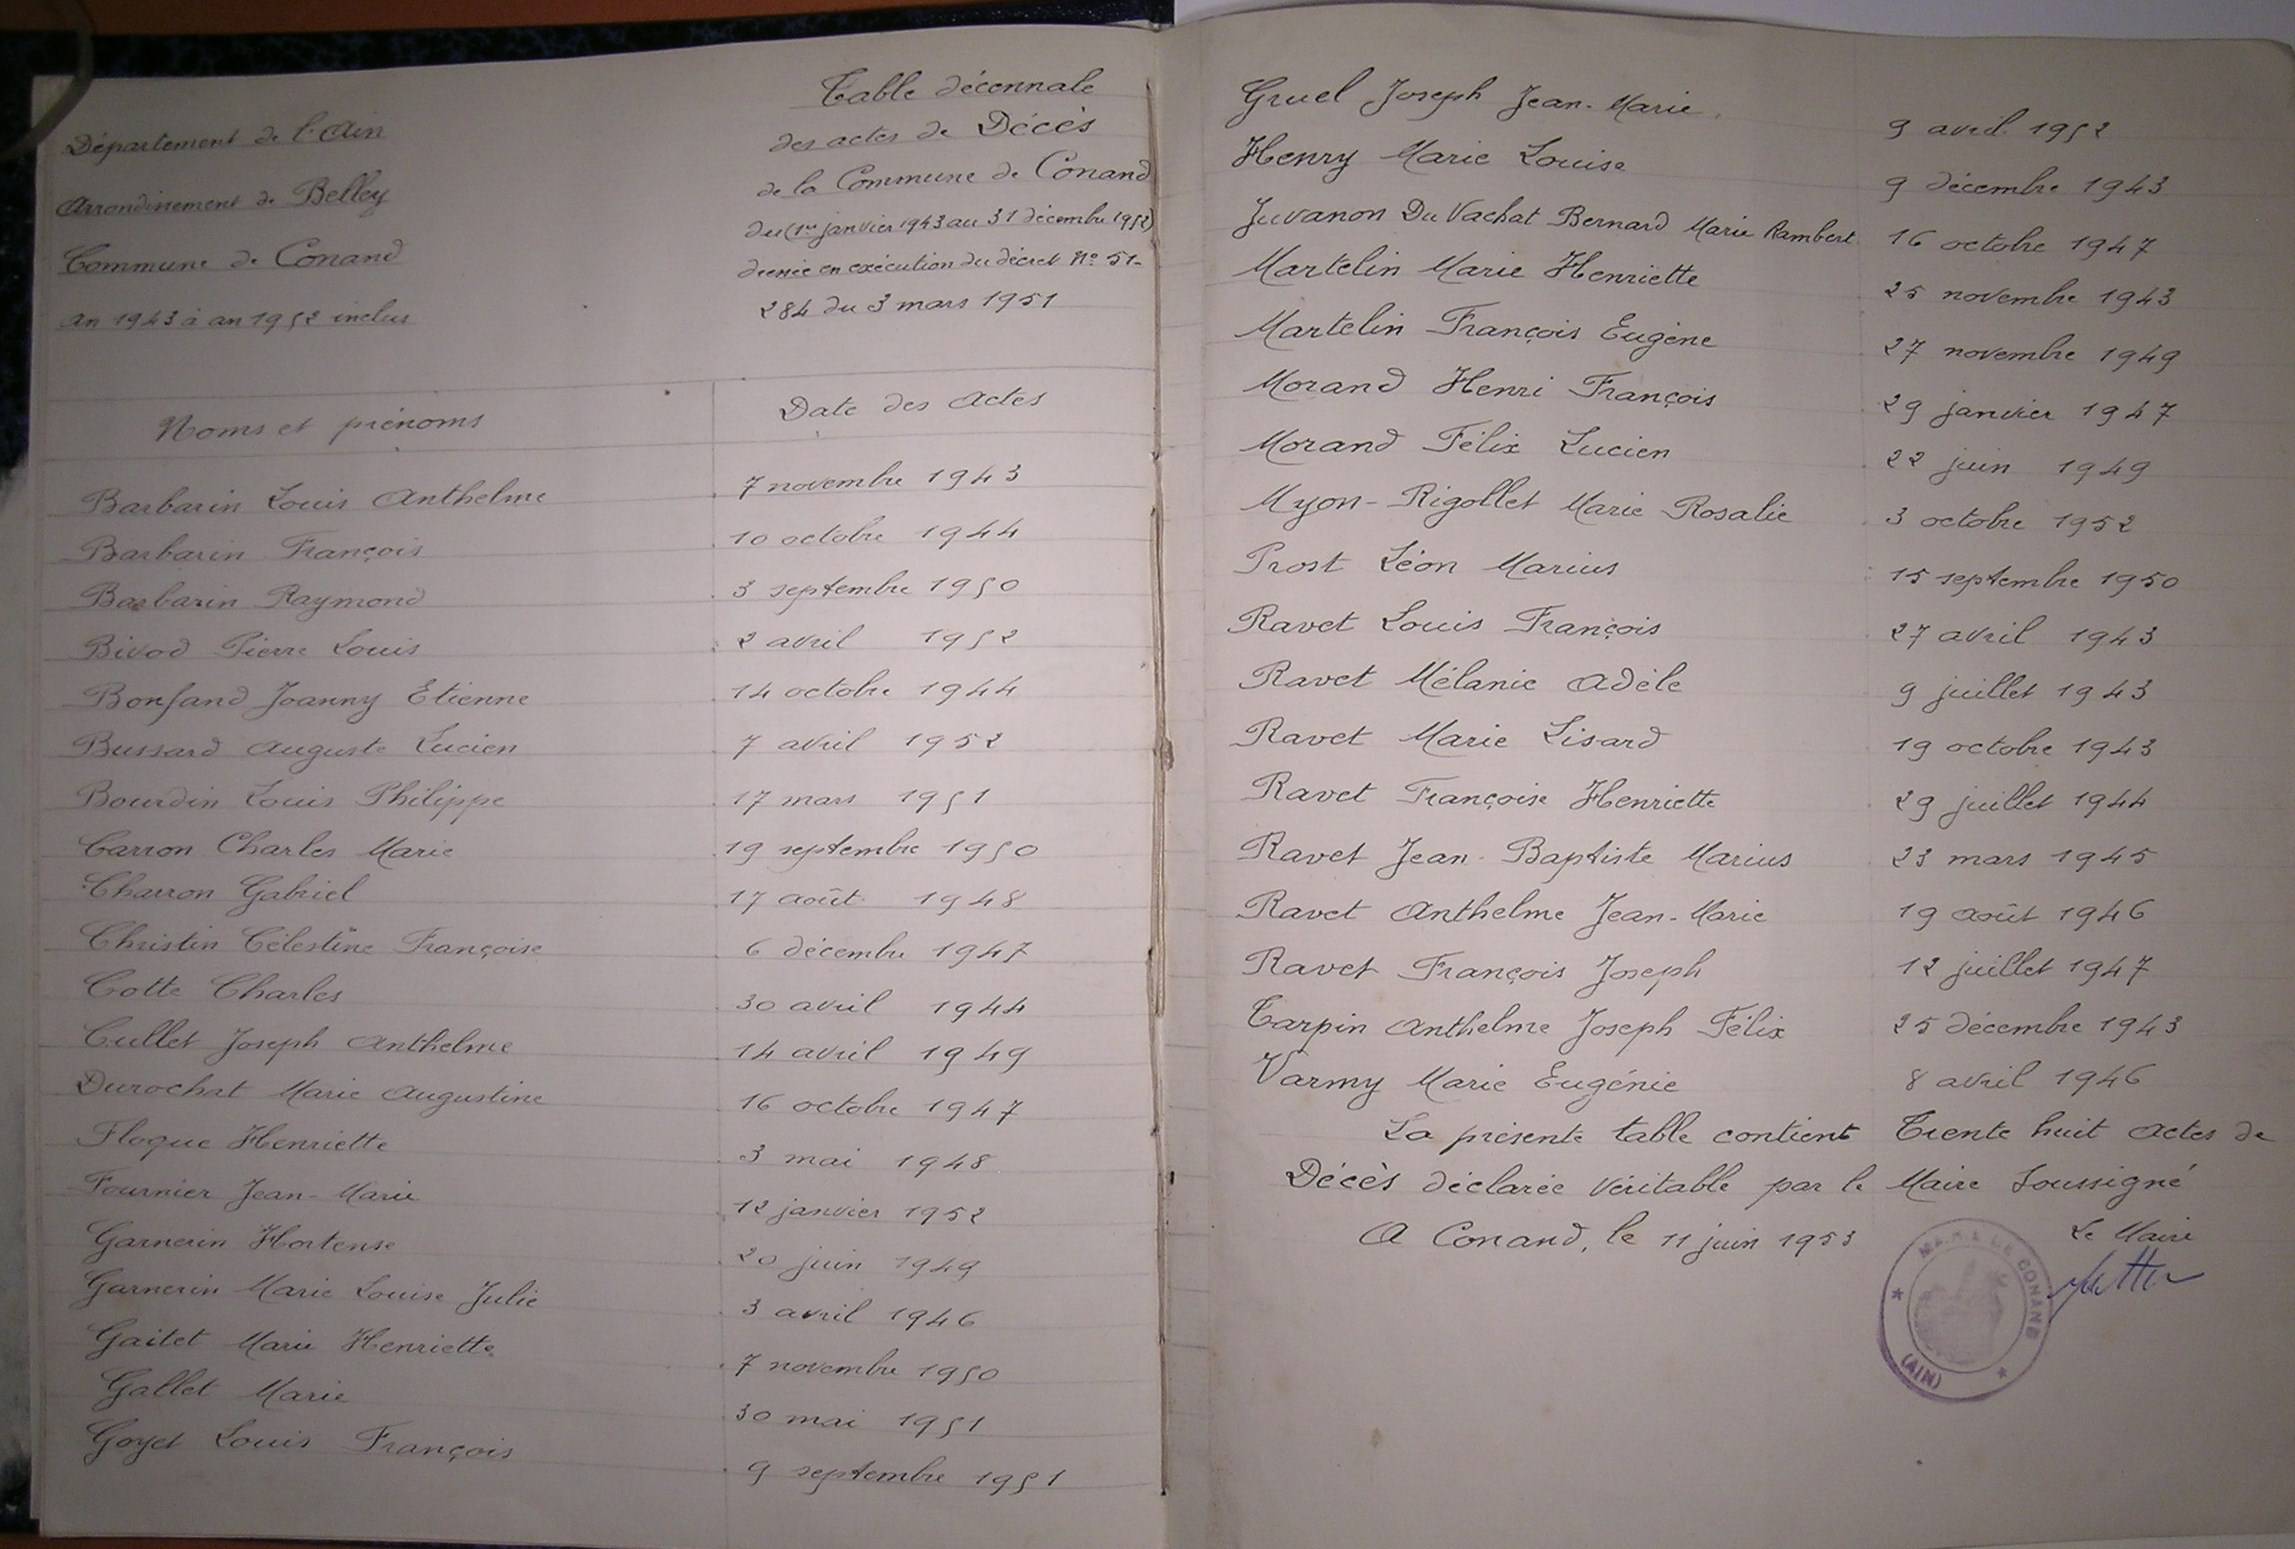 Département de l'Ain
Arrondissement de Belley
Commune de Conand
an 1943 à an 1952 inclus
Table décennale
des actes de Décès
de la Commune de Conand
du (1er janvier 1943 au 31 décembre 1952)
dressée en exécution du décret No 51-
284 du 3 mars 1951
Noms et prénoms Date des actes
Barbarin Louis Anthelme 7 novembre 1943
Barbarin François 10 octobre 1944
Barbarin Raymond 3 septembre 1950
Bivod Pierre Louis 2 avril 1952
Bonfand Joanny Etienne 14 octobre 1944
Bussard Auguste Lucien 7 avril 1952
Bourdin Louis Philippe 17 mars 1951
Carron Charles Marie 19 septembre 1950
Charron Gabriel 17 août 1948
Christin Célestine Françoise 6 décembre 1947
Cotte Charles 30 avril 1944
Cullet Joseph Anthelme 14 avril 1949
Durochat Marie Augustine 16 octobre 1947
Floque Henriette 3 mai 1948
Fournier Jean-Marie 12 janvier 1952
Garnerin Hortense 20 juin 1949
Garnerin Marie Louise Julie 3 avril 1946
Gaitet Marie Henriette 7 novembre 1950
Gallet Marie 30 mai 1951
Goyet Louis François 9 septembre 1951
Gruel Joseph Jean-Marie 9 avril 1952
Henry Marie Louise 9 décembre 1943
Juvanon Du Vachat Bernard Marie Rambert 16 octobre 1947
Martelin Marie Henriette 25 novembre 1943
Martelin François Eugène 27 novembre 1949
Morand Henri François 29 janvier 1947
Morand Félix Lucien 22 juin 1949
Myon-Rigollet Marie Rosalie 3 octobre 1952
Prost Léon Marius 15 septembre 1950
Ravet Louis François 27 avril 1943
Ravet Mélanie Adèle 9 juillet 1943
Ravet Marie Lisard 19 octobre 1943
Ravet Françoise Henriette 29 juillet 1944
Ravet Jean-Baptiste Marius 23 mars 1945
Ravet Anthelme Jean-Marie 19 août 1946
Ravet François Joseph 12 juillet 1947
Tarpin Anthelme Joseph Félix 25 décembre 1943
Varmy Marie Eugénie 8 avril 1946
La présente table contient Trente huit actes de
Décès déclarée véritable par le Maire Soussigné
A Conand, le 11 juin 1953
Le Maire
MAIRIE DE CONAND
(AIN)